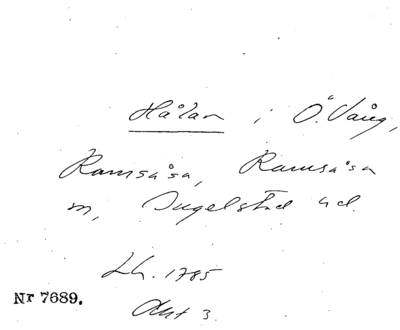 Hålan i Ö. Vång,
Ramsåsa, Ramsåsa
sn, Ingelstad hd.
Lh. 1785
Nr 7689.
Akt 3